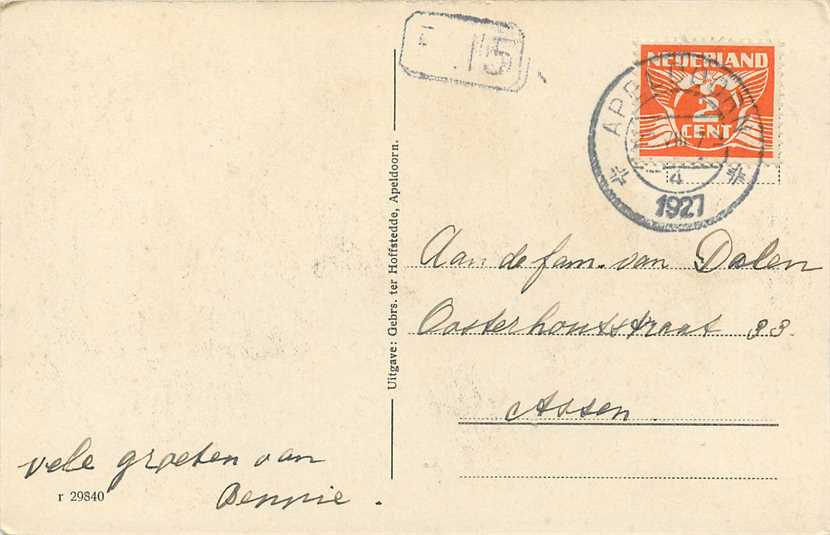 15
NEDERLAND
2
CENT
APELDOORN
4
1927
Uitgave: Gebrs. ter Hoffstedde, Apeldoorn.
Aan de fam. van Dalen
Oosterhoutstraat 33
Assen.
vele groeten van
Bennie.
r 29840